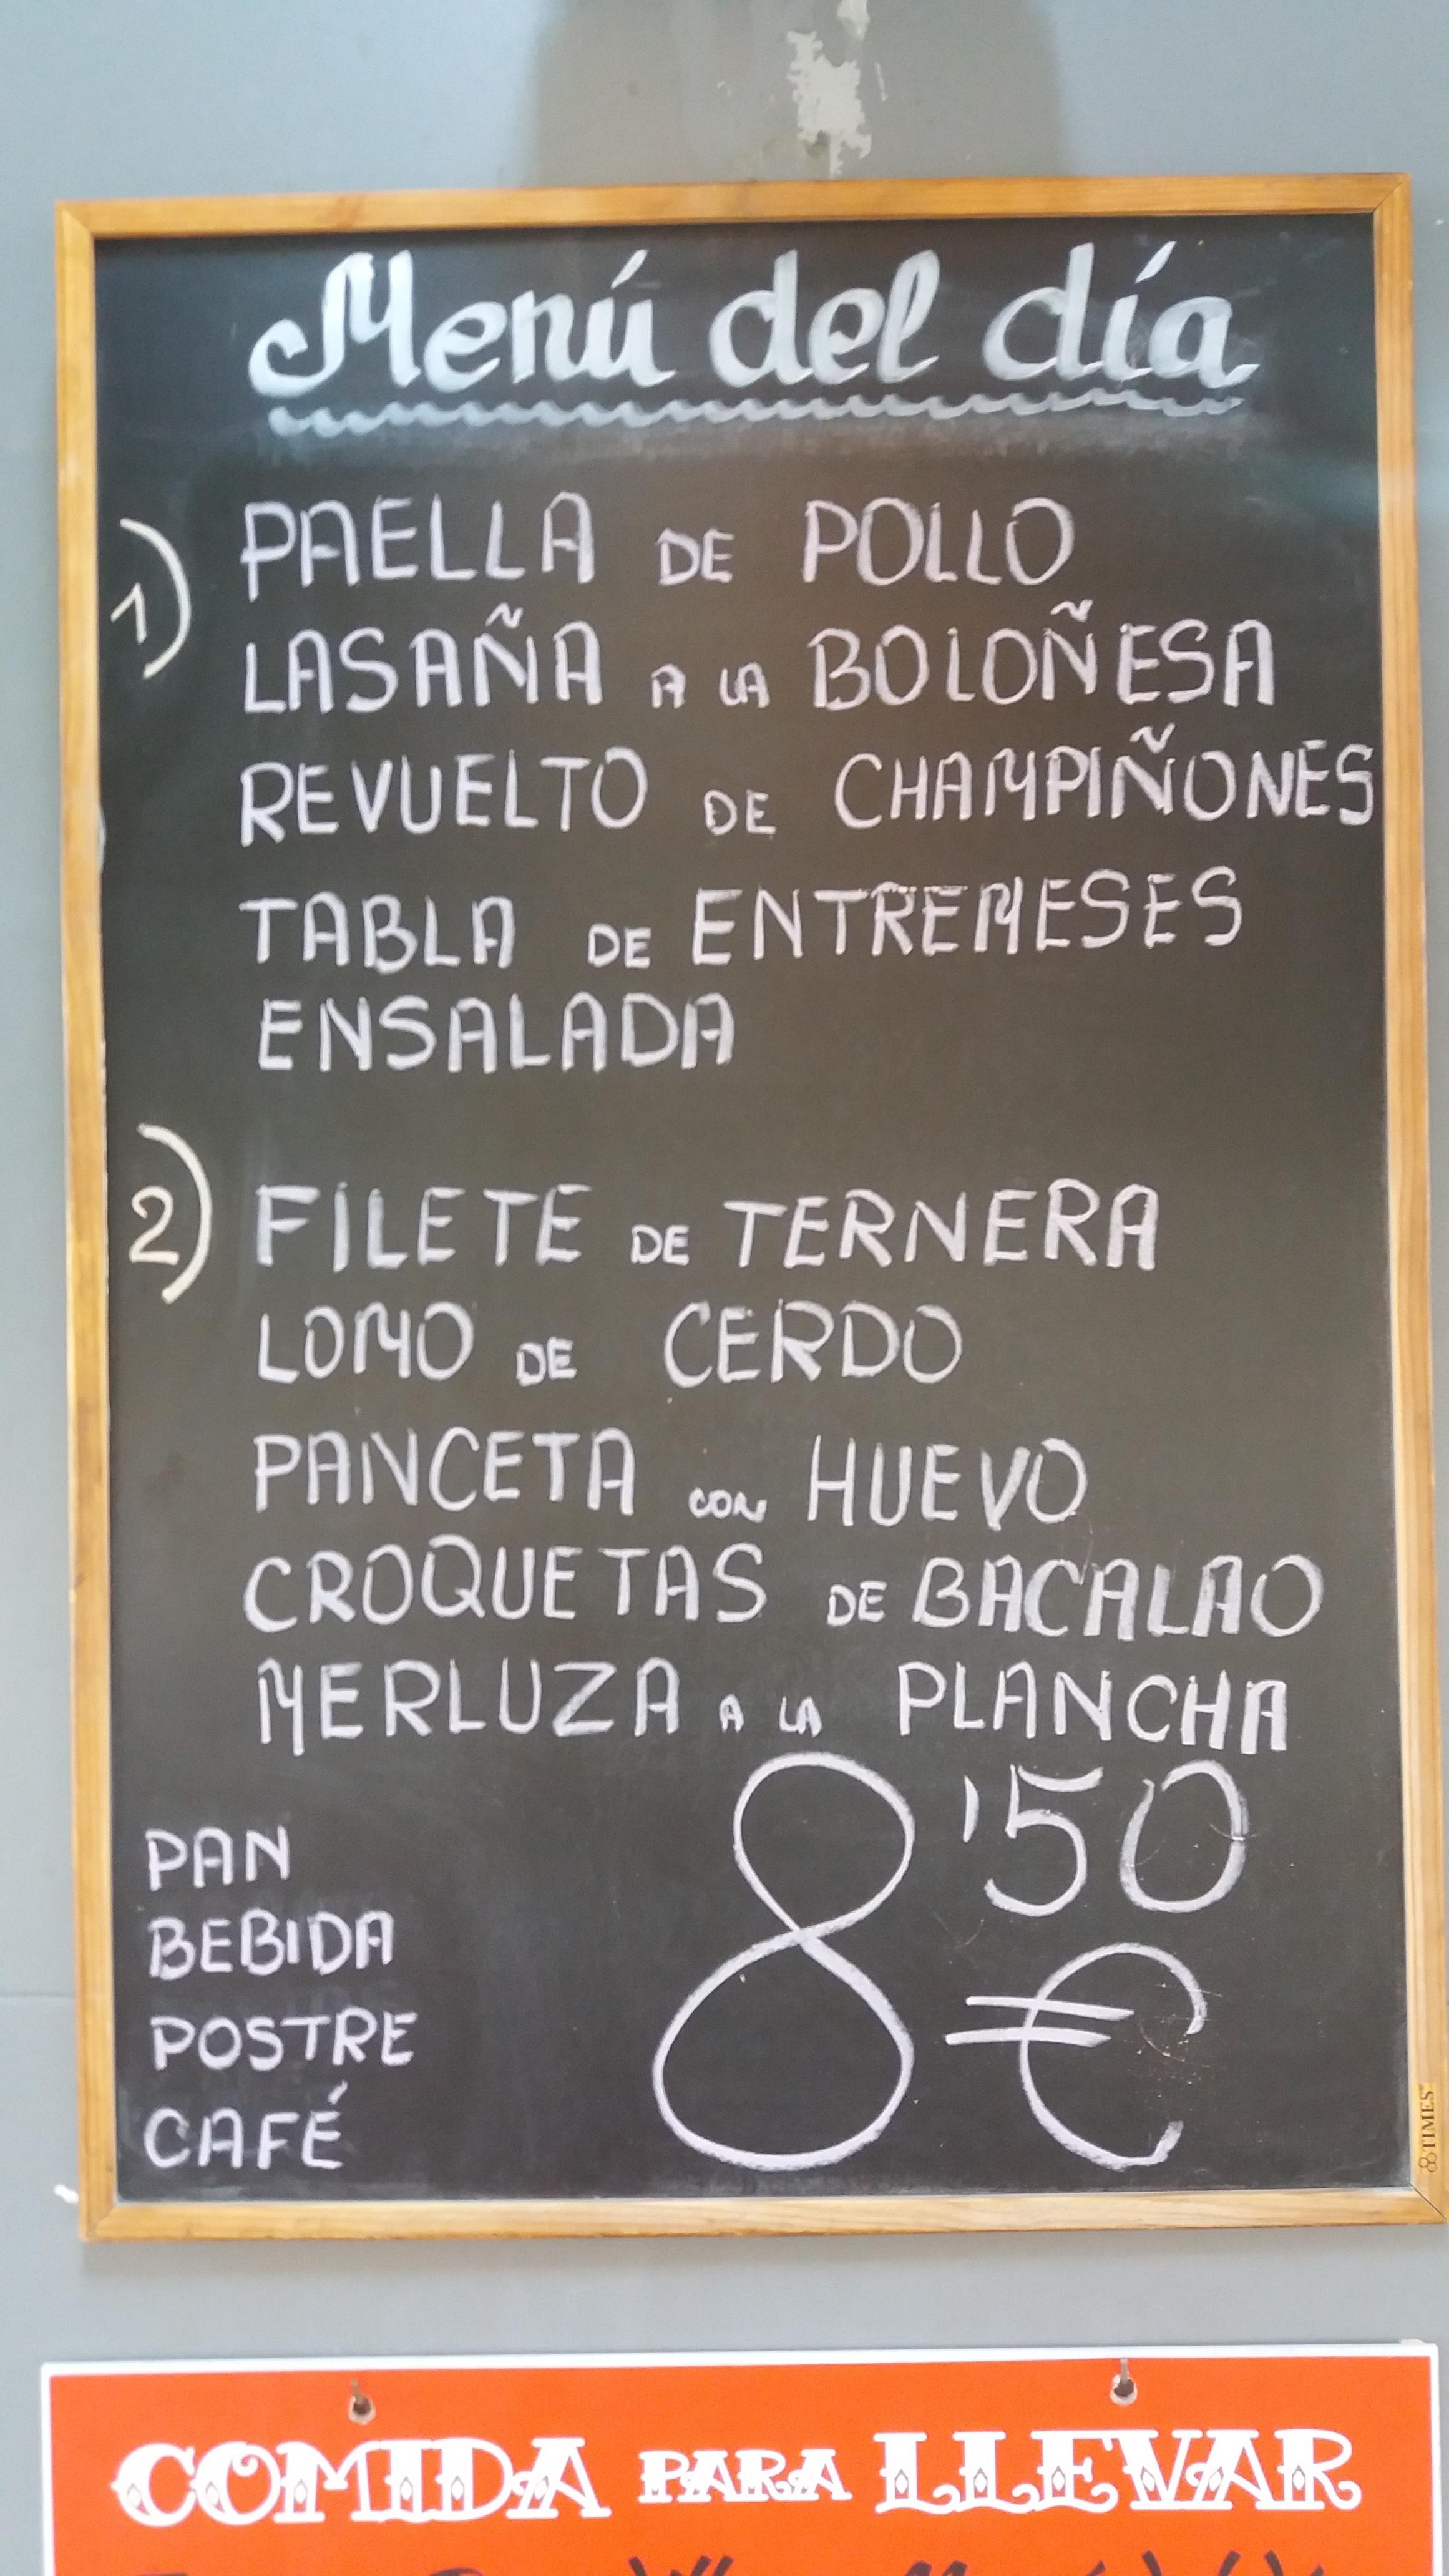 Menú del día
1) PAELLA DE POLLO
LASAÑA A LA BOLOÑESA
REVUELTO DE CHAMPIÑONES
TABLA DE ENTREMESES
ENSALADA
2) FILETE DE TERNERA
LOMO DE CERDO
PANCETA CON HUEVO
CROQUETAS DE BACALAO
MERLUZA A LA PLANCHA
PAN
BEBIDA
POSTRE
CAFÉ
8'50
€
TIMES
COMIDA PARA LLEVAR